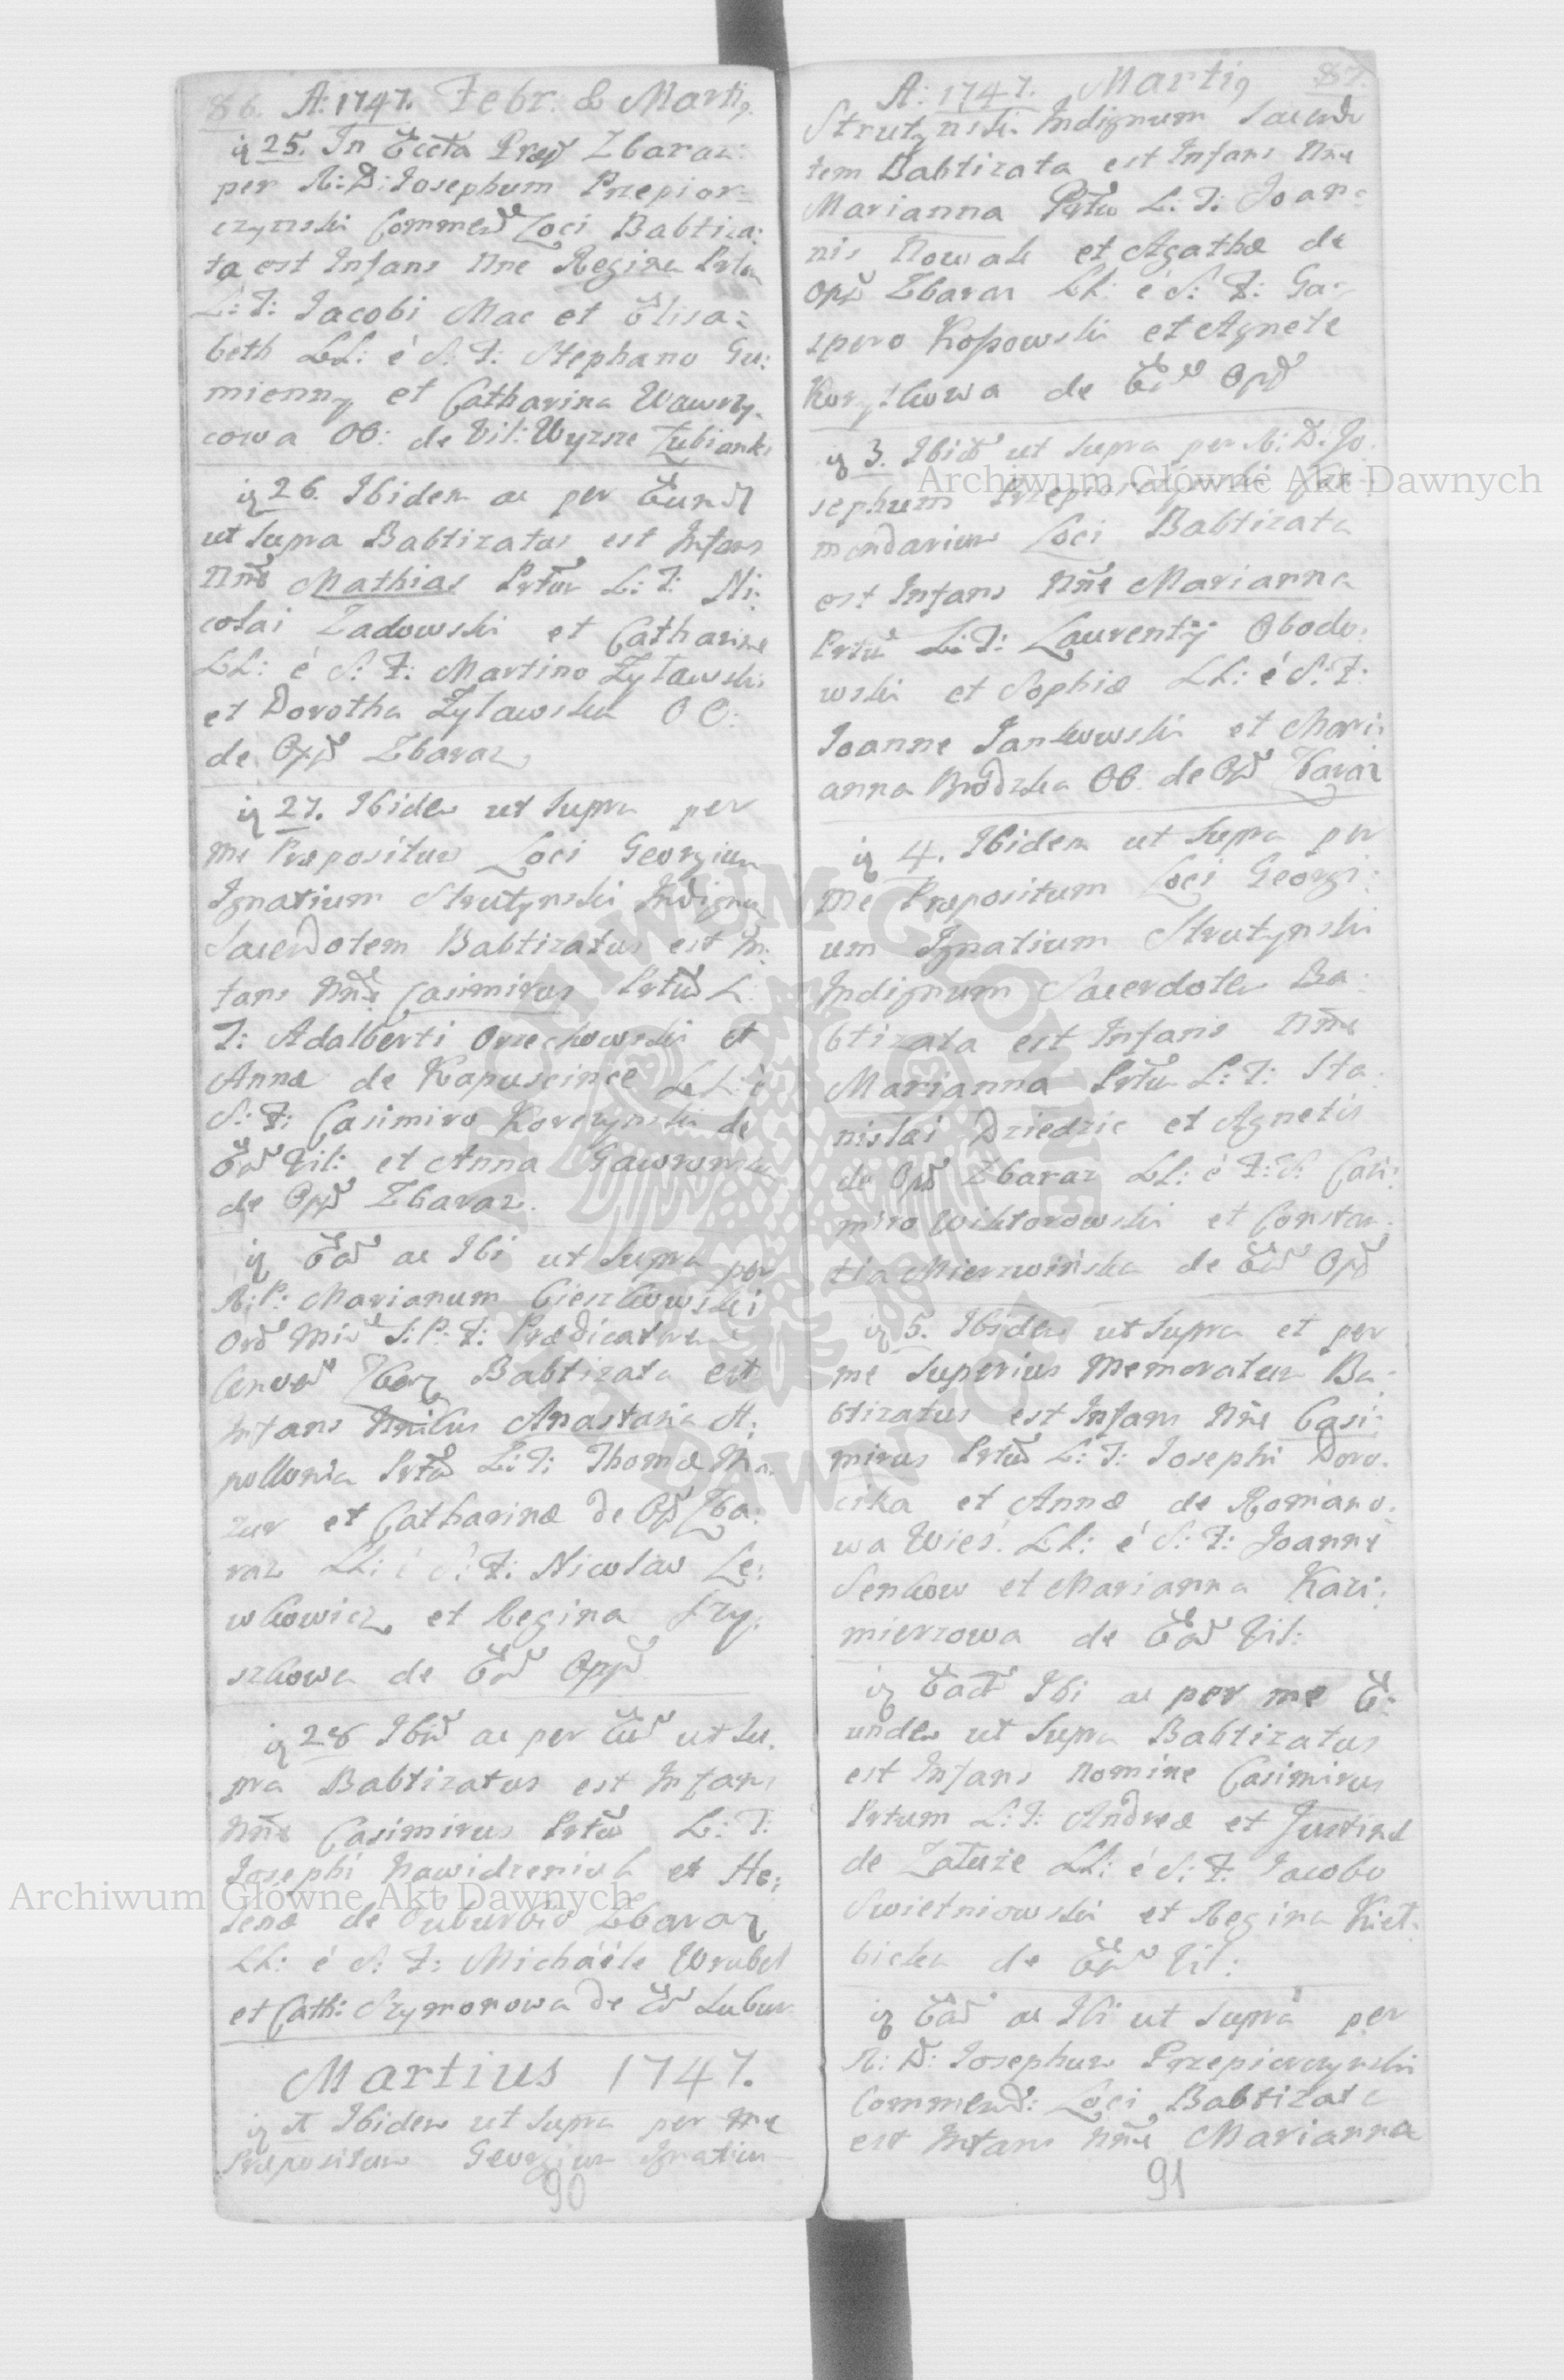 86. A: 1747. Febr. & Martiq
iq 25. In Eccta Praep Zbaraz:
per R: D: Josephum Przepior=
czynski Commend Loci Babtiza:
ta est Infans Nne Regina Prtu
L: T: Jacobi Mac et Elisa:
beth LL: é S: F: Stephano Gu:
mienny et Catharina Wawrzy.
cowa OO: de Vil: Wyzsze Łubianki
iq 26. Ibidem ac per Eund
ut supra Babtizatus est Infans
Nne Mathias Prtu L: T: Ni:
colai Zadowski et Catharinæ
LL: é S: F: Martino Zyławski
et Dorotha Zyławska OO:
de Opp Zbaraz
iq 27. Ibidem ut supra per
me Præpositum Loci Georgium
Ignatium Strutynski Indignu
Sacerdotem Babtizatus est In:
fans Nne Casimirus Prtu L:
T: Adalberti Orzechowski et
Annæ de Kapuscince LL: é
S: F: Casimiro Korczynski de
Ead Vil: et Anna
de Opp Zbaraz.
iq Ead ac Ibi ut supra per
R: P: Marianum Cieszkowski
Ord Min S: P: F: Prædicatorem
Convent Zbar Babtizata est
Infans Nnibus Anastasia A:
pollonia Prtu L: T: Thomæ Ma:
zur et Catharinæ de Opp Zba:
raz LL: é S: F: Nicolao Le:
wkowicz et Regina Szy:
szkowa de Ead Opp
iq 28 Ibid ac per Eund ut su.
pra Babtizatus est Infans
Nne Casimirus Prtu L: T:
Josephi Nawidzeniuk et He:
lenæ de Suburbio Zbaraz
LL: é S: F: Michaéle Wrubel
et Cath: Szymonowa de Ead Subur
Martius 1747.
iq Ibidem ut supra per me
Præpositum Georgium Ignatium
90
A: 1747. Martiq 87.
Strutynski Indignum Sacerdo
tem Babtizata est Infans Nne
Marianna Prtu L: T: Joan=
nis Nowak et Agathæ de
Opp Zbaraz LL: é S: F: Ga=
spero Kossowski et Agnete
de Ead Opp
iq 3. Ibid ut supra per R: D. Jo.
sephum Przepiorczynski Com
mendarium Loci Babtizata
est Infans Nne Marianna
Prtu L: T: Laurentij Obodo:
wski et Sophiæ LL: é S: F:
Joanne Jankowski et Mari:
anna Brodzka OO: de Opp Zbaraz
iq 4. Ibidem ut supra per
me Præpositum Loci Georgi:
um Ignatium Strutynski
Indignum Sacerdotem Ba:
btizata est Infans Nne
Marianna Prtu L: T: Sta:
nislai Dziedzic et Agnetis
de Opp Zbaraz LL: é F: S: Casi:
miro Wiktorowski et Constan:
tia Mierzwińska de Ead Opp
iq 5. Ibidem ut supra et per
me superius Memoratum Ba:
btizatus est Infans Nne Casi:
mirus Prtu L: T: Josephi Doro.
cika et Annæ de Romano.
wa Wieś. LL: é S: F: Joanne
Senkow et Marianna Kazi:
mierzowa de Ead Vil:
iq Ead Ibi ac per me E:
undem ut supra Babtizatus
est Infans nomine Casimirus
Prtum L: T: Andreæ et Justinæ
de Załuże LL: é S: F: Jacobo
Swietniowski et Regina Kieł:
bicka de Ead Vil:
iq Ead ac Ibi ut supra per
R: D: Josephum Przepiorczynski
Commend: Loci Babtizata
est Infans Nne Marianna
91
Archiwum Główne Akt Dawnych
Archiwum Główne Akt Dawnych
ARCHIWUM GŁÓWNE
AKT DAWNYCH